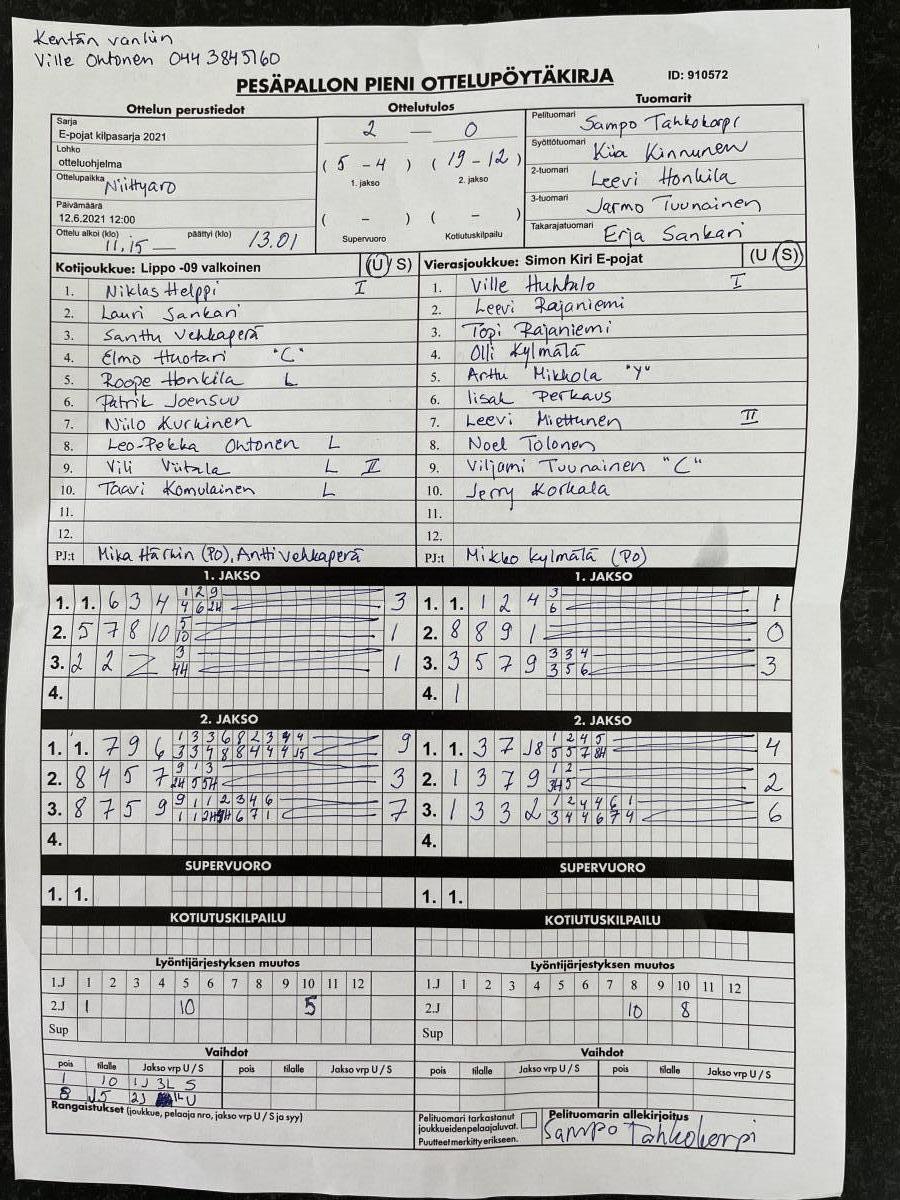 Kentän vanhin
Ville Ohtonen 044 3845160
PESÄPALLON PIENI OTTELUPÖYTÄKIRJA ID: 910572
Ottelun perustiedot Ottelutulos Tuomarit
Sarja
E-pojat kilpasarja 2021
Lohko
otteluohjelma
Ottelupaikka Niittyaro
Päivämäärä
12.6.2021 12:00
Ottelu alkoi (klo) 11.15 — päättyi (klo) 13.01
2 — 0
( 5 - 4 ) ( 19 - 12 )
1. jakso 2. jakso
( - ) ( - )
Supervuoro Kotiutuskilpailu
Pelituomari Sampo Tahkokorpi
Syöttötuomari Kiia Kinnunen
2-tuomari Leevi Honkila
3-tuomari Jarmo Tuunainen
Takarajatuomari Erja Sankari
Kotijoukkue: Lippo -09 valkoinen (U / S)
1. Niklas Helppi I
2. Lauri Sankari
3. Santtu Vehkaperä
4. Elmo Huotari "C"
5. Roope Honkila L
6. Patrik Joensuu
7. Niilo Kurkinen
8. Leo-Pekka Ohtonen L
9. Vili Viitala L II
10. Taavi Komulainen L
11.
12.
PJ:t Mika Härkin (PO), Antti Vehkaperä
Vierasjoukkue: Simon Kiri E-pojat (U / S)
1. Ville Huhtalo I
2. Leevi Rajaniemi
3. Topi Rajaniemi
4. Olli Kylmälä
5. Arttu Mikkola "Y"
6. Iisak Perkaus
7. Leevi Miettunen II
8. Noel Tolonen
9. Viljami Tuunainen "C"
10. Jerry Korkala
11.
12.
PJ:t Mikko Kylmälä (PO)
1. JAKSO
1. 1. 6 3 4 1 2 9 3
4 6 2H
2. 5 7 8 10 5 1
10
3. 2 2 3 1
4H
4.
1. JAKSO
1. 1. 1 2 4 3 1
6
2. 8 8 9 1 0
3. 3 5 7 9 3 3 4 3
3 5 6
4. 1
2. JAKSO
1. 1. 7 9 6 1 3 3 6 8 2 3 4 4 9
3 3 4 8 8 4 4 4 J5
2. 8 4 5 7 9 1 3 3
2H 5 5H
3. 8 7 5 9 9 1 1 2 3 4 6 7
4.
2. JAKSO
1. 1. 3 7 J8 1 2 4 5 4
5 5 7 8H
2. 1 3 7 9 1 2 2
3H 5
3. 1 3 3 2 1 2 4 4 6 1 6
3 4 4 6 7 4
4.
SUPERVUORO SUPERVUORO
1. 1. 1. 1.
KOTIUTUSKILPAILU KOTIUTUSKILPAILU
Lyöntijärjestyksen muutos
1.J 1 2 3 4 5 6 7 8 9 10 11 12
2.J 1 10 5
Sup
Lyöntijärjestyksen muutos
1.J 1 2 3 4 5 6 7 8 9 10 11 12
2.J 10 8
Sup
Vaihdot
pois tilalle Jakso vrp U / S pois tilalle Jakso vrp U / S
1 10 1J 3L S
8 J5 2J 1L U
Vaihdot
pois tilalle Jakso vrp U / S pois tilalle Jakso vrp U / S
Rangaistukset (joukkue, pelaaja nro, jakso vrp U / S ja syy)
Pelituomari tarkastanut
joukkueidenpelaajaluvat.
Puutteet merkitty erikseen.
Pelituomarin allekirjoitus
Sampo Tahkokorpi